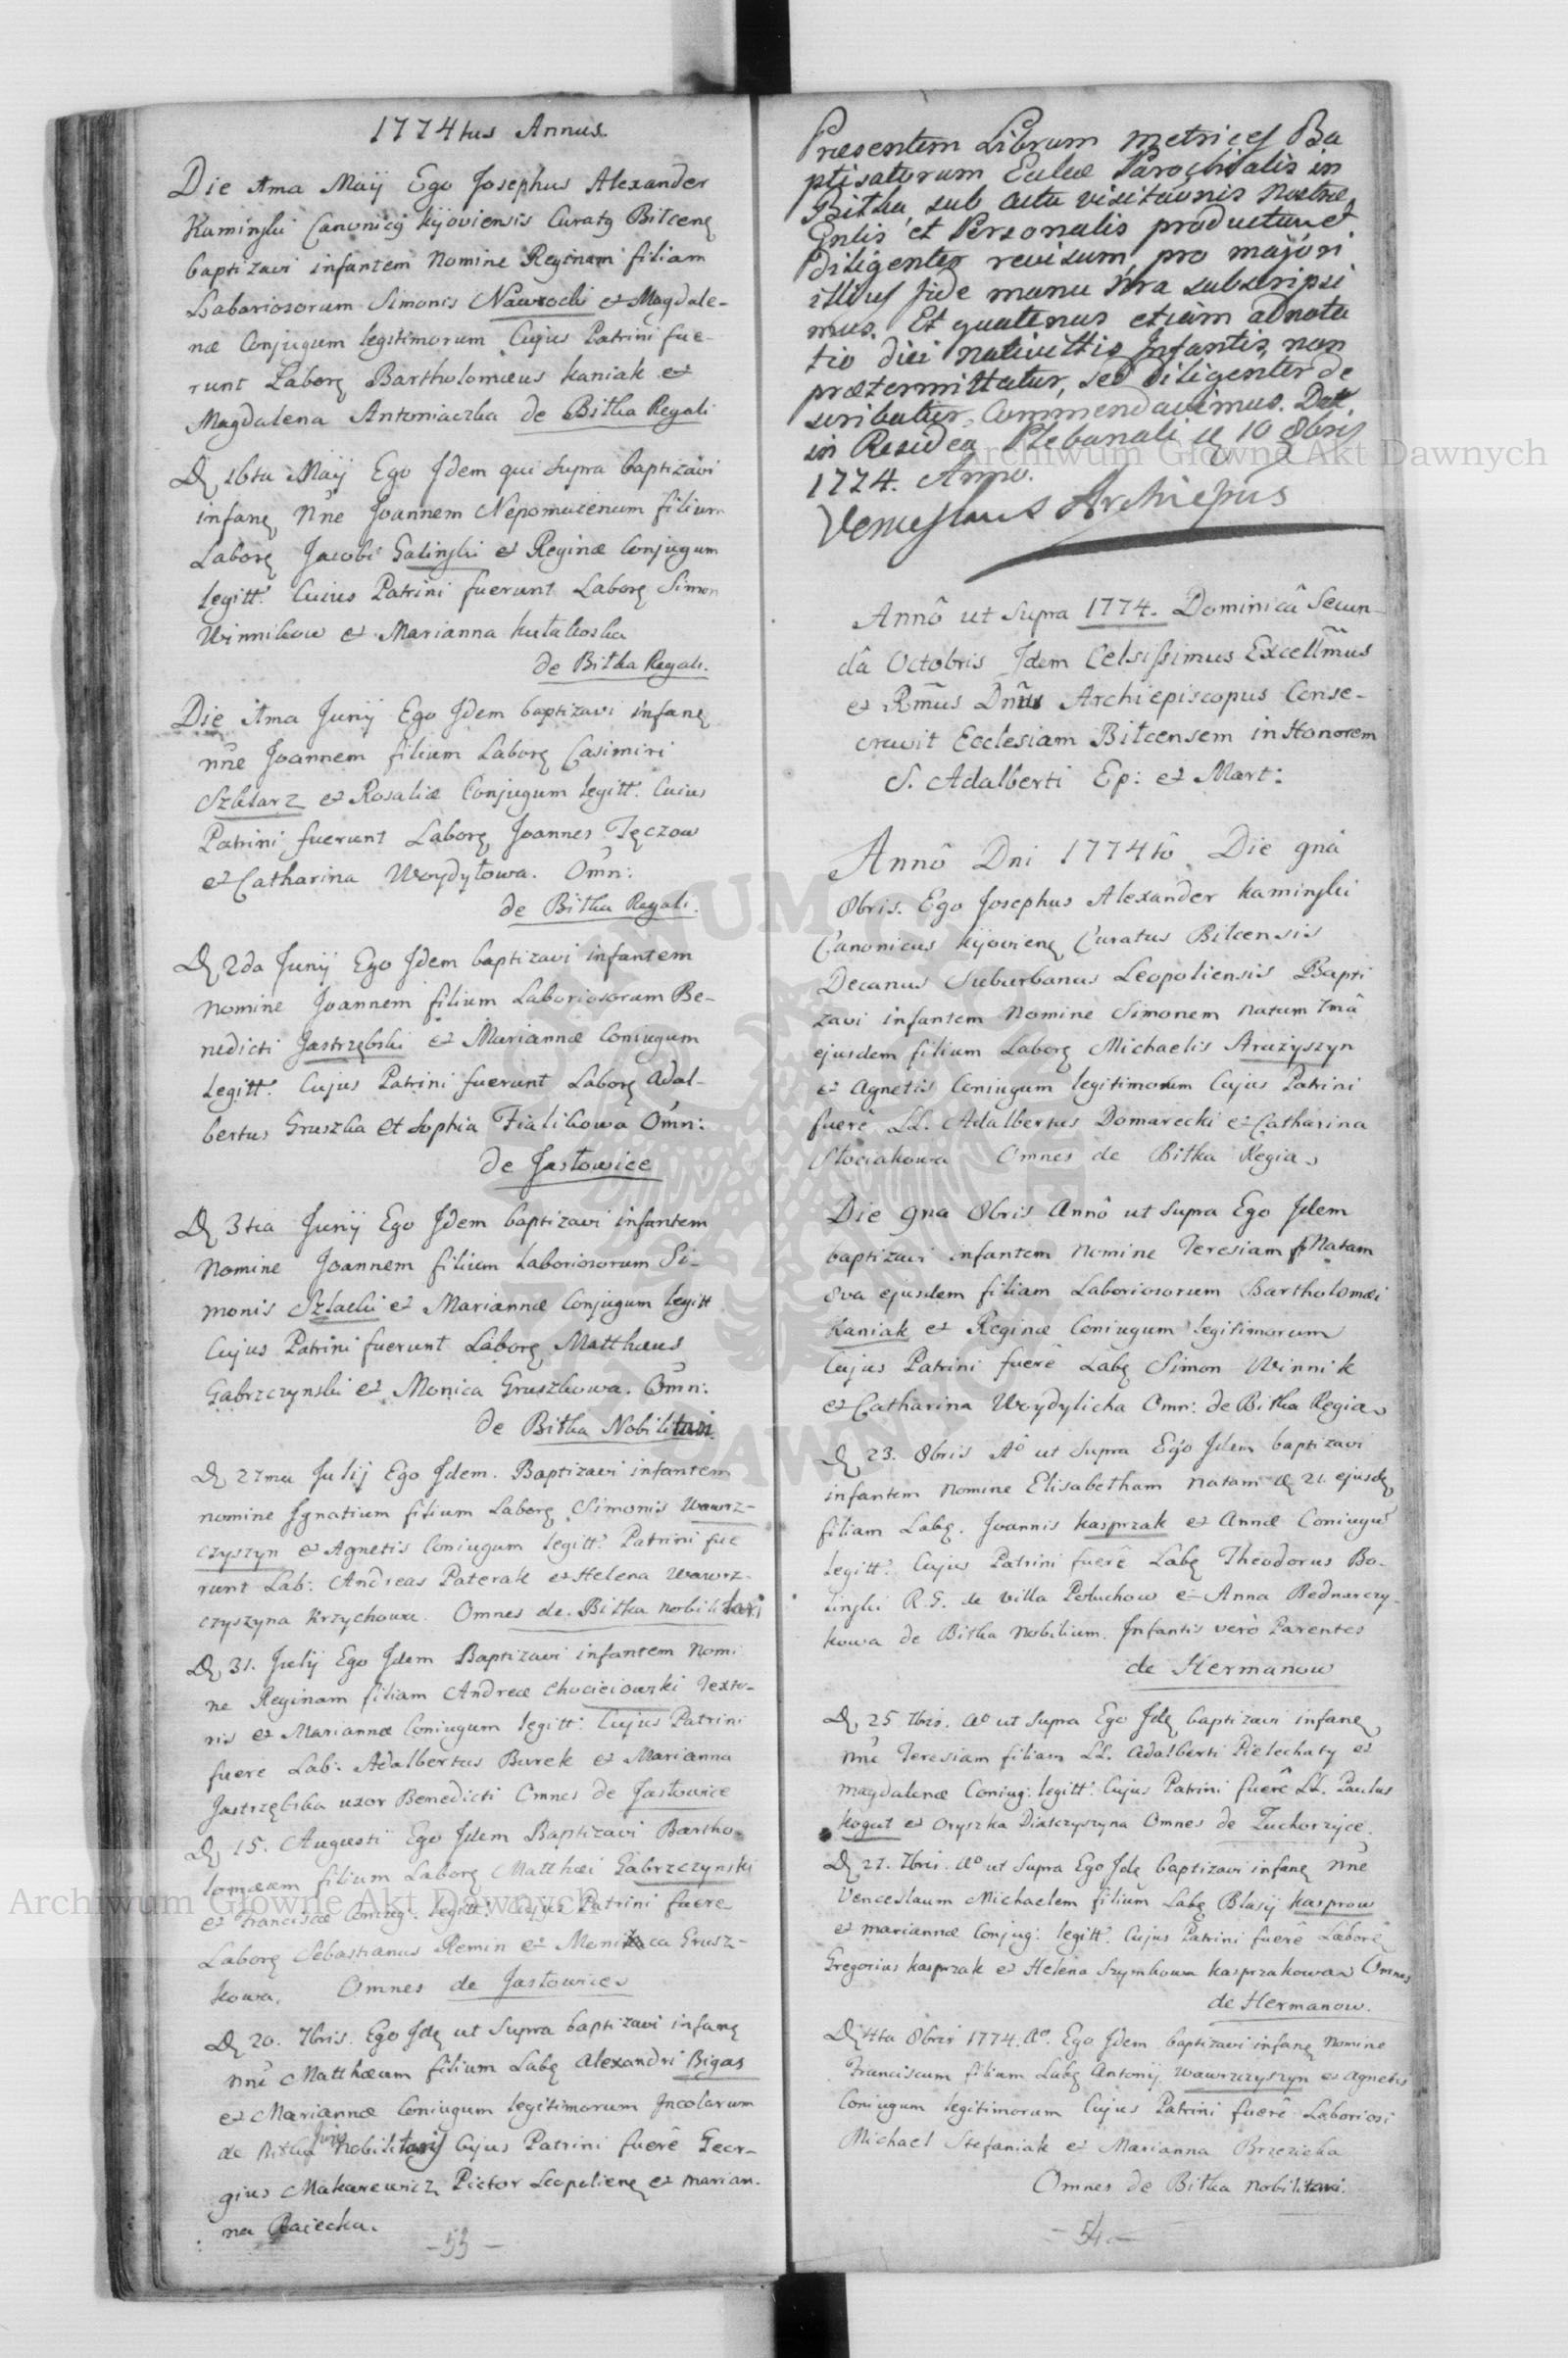 1774tus Annus.
Die 1ma Maij Ego Josephus Alexander
Kaminski Canonicq Kijoviensis Curatq Bitcenę
baptizavi infantem Nomine Reginam filiam
Laboriosorum Simonis Nawrocki et Magdale-
næ Conjugum legitimorum Cujus Patrini fue-
runt Laborę Bartholomæus Kaniak et
Magdalena Antoniaczka de Bitka Regali
D. 16ta Maij Ego Jdem qui supra baptizavi
infanę Nne Joannem Nepomucenum filium
Laborę Jacobi Galinski et Reginæ Conjugum
legitt: Cuius Patrini fuerunt Laborę Simon
Winnikow et Marianna
de Bitka Regali.
Die 1ma Junij Ego Jdem baptizavi infanę
nne Joannem filium Laborę Casimiri
Szklarz et Rosaliæ Conjugum legitt: Cuius
Patrini fuerunt Laborę Joannes Tęczow
et Catharina Woydyłowa. Omn:
de Bitka Regali.
D. 2da Junij Ego Jdem baptizavi infantem
nomine Joannem filium Laboriosorum Be-
nedicti Jastrzębski et Mariannæ Coniugum
legitt: Cujus Patrini fuerunt Laborę Adal-
bertus Gruszka et Sophia Fialikowa Omn:
de Jastowice
D. 3tia Junij Ego Jdem baptizavi infantem
Nomine Joannem filium Laboriosorum Si-
monis Szlachi et Mariannæ Conjugum legitt
Cujus Patrini fuerunt Laborę Matthæus
Gabrzczynski et Monica Gruszkowa. Omn:
de Bitka Nobilitari.
D. 27ma Julij Ego Jdem. Baptizavi infantem
nomine Ignatium filium Laborę Simonis Wawrz-
czyszyn et Agnetis Coniugum legitt: Patrini fue
runt Lab: Andreas Paterak et Helena Wawrz-
czyszyna Krzychowa. Omnes de Bitka nobilitari
D. 31. Julij Ego Jdem Baptizavi infantem Nomi
ne Reginam filiam Andreæ Chociciowski Texto-
ris et Mariannæ Coniugum legitt: Cujus Patrini
fuere Lab: Adalbertus Burek et Marianna
Jastrzębska uxor Benedicti Omnes de Jastowice
D. 15. Augusti Ego Jdem Baptizavi Bartho-
lomæum filium Laborę Matthæi Gabrzczynski
et Franciscæ Coniug: legitt: Cujus Patrini fuere
Laborę Sebastianus Remin et Monica Grusz-
kowa. Omnes de Jastowice
D. 20. 7bris. Ego Jdę ut supra baptizavi infanę
nne Matthæum filium Labę Alexandri Bigas
et Mariannæ Coniugum legitimorum Incolarum
de Bitka Juris Nobilitaris Cujus Patrini fuerê Geor-
gius Makarewicz Pictor Leopolienę et Marian-
na Raiecka.
-53-
Præsentem Librum metrices Ba
ptisatorum Ecclæ Parochialis in
Bitka, sub actu visitaonis nostræ
Gnlis et Personalis productum et
diligenter revisum pro majori
illius fide manu Nra subscripsi
mus. Et quatenus etiam adnota
tio diei nativittis Infantis, non
prætermittatur, sed diligenter de
scribatur, Commendavimus. Dat.
in Residen Plebanali D. 10 8bris
1774. Anno.
Venceslaus Archiepus
Annô ut supra 1774. Dominicâ Secun-
dâ Octobris Jdem Celsissimus Excellmus
et Rmus Dnus Archiepiscopus Conse-
cravit Ecclesiam Bitcensem in Honorem
S. Adalberti Ep: et Mart:
Annô Dni 1774tô. Die 9nâ
8bris. Ego Josephus Alexander Kaminski
Canonicus Kijovienę Curatus Bitcensis
Decanus Suburbanus Leopoliensis Bapti
zavi infantem Nomine Simonem natum 7mâ
ejusdem filium Laborę Michaelis Aruzyszyn
et Agnetis Coniugum legitimorum Cujus Patrini
fuerê LL. Adalbertus Domarecki et Catharina
Stociakowa Omnes de Bitka Regia
Die 9na 8bris Annô ut supra Ego Jdem
baptizavi infantem Nomine Teresiam Natam
8va ejusdem filiam Laboriosorum Bartholomæi
Kaniak et Reginæ Coniugum legitimorum
Cujus Patrini fuerê Labę Simon Winnik
et Catharina Woydylicha Omn: de Bitka Regia
D. 23. 8bris Aº ut supra Ego Jdem baptizavi
infantem nomine Elisabetham Natam D. 21. ejusdę
filiam Labę. Joannis Kasprzak et Annæ Coniugu
legitt: Cujus Patrini fuerê Labę Theodorus Bo-
linski R. G. de villa Potuchow et Anna Bednarczy-
kowa de Bitka Nobilium. Infantis verò Parentes
de Hermanow
D. 25 7bris. Aº ut supra Ego Jdę baptizavi infanę
nne Teresiam filiam LL. Adalberti Pielechaty et
Magdalenæ Coniug: legitt: Cujus Patrini fuerê LL. Paulus
Kogut et Oryszka Diatczyszyna Omnes de Zuchorzyce.
D. 27. 7bris. Aº ut supra Ego Jdę baptizavi infanę nne
Venceslaum Michaelem filium Labę Blasij Kasprow
et Mariannæ Conjug: legitt: Cujus Patrini fuerê Laborê
Gregorius Kasprzak et Helena Szymkowa Kasprzakowa Omnes
de Hermanow.
D. 4ta 8bris 1774. Aº. Ego Jdem baptizavi infanę Nomine
Franciscum filium Labę Antonij Wawrzczyszyn et Agnetis
Coniugum legitimorum Cujus Patrini fuerê Laboriosi
Michael Stefaniak et Marianna Brzezicka
Omnes de Bitka nobilitari.
-54-
Archiwum Główne Akt Dawnych
Archiwum Główne Akt Dawnych